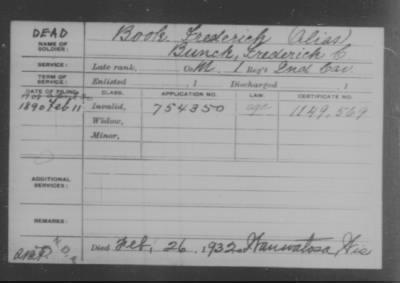 DEAD Book Frederick (Alias)
NAME OF SOLDIER: Bunch, Frederick C
SERVICE: Late rank, Co. M, 1 Reg't Ind Cav.
TERM OF SERVICE: Enlisted , 1 Discharged , 1
DATE OF FILING. CLASS. APPLICATION NO. LAW. CERTIFICATE NO.
1890 Feb 11 Invalid, 754350 age 1149,569
Widow,
Minor,
ADDITIONAL SERVICES:
REMARKS:
Died Feb, 26, 1932, Wauwatosa, Wis